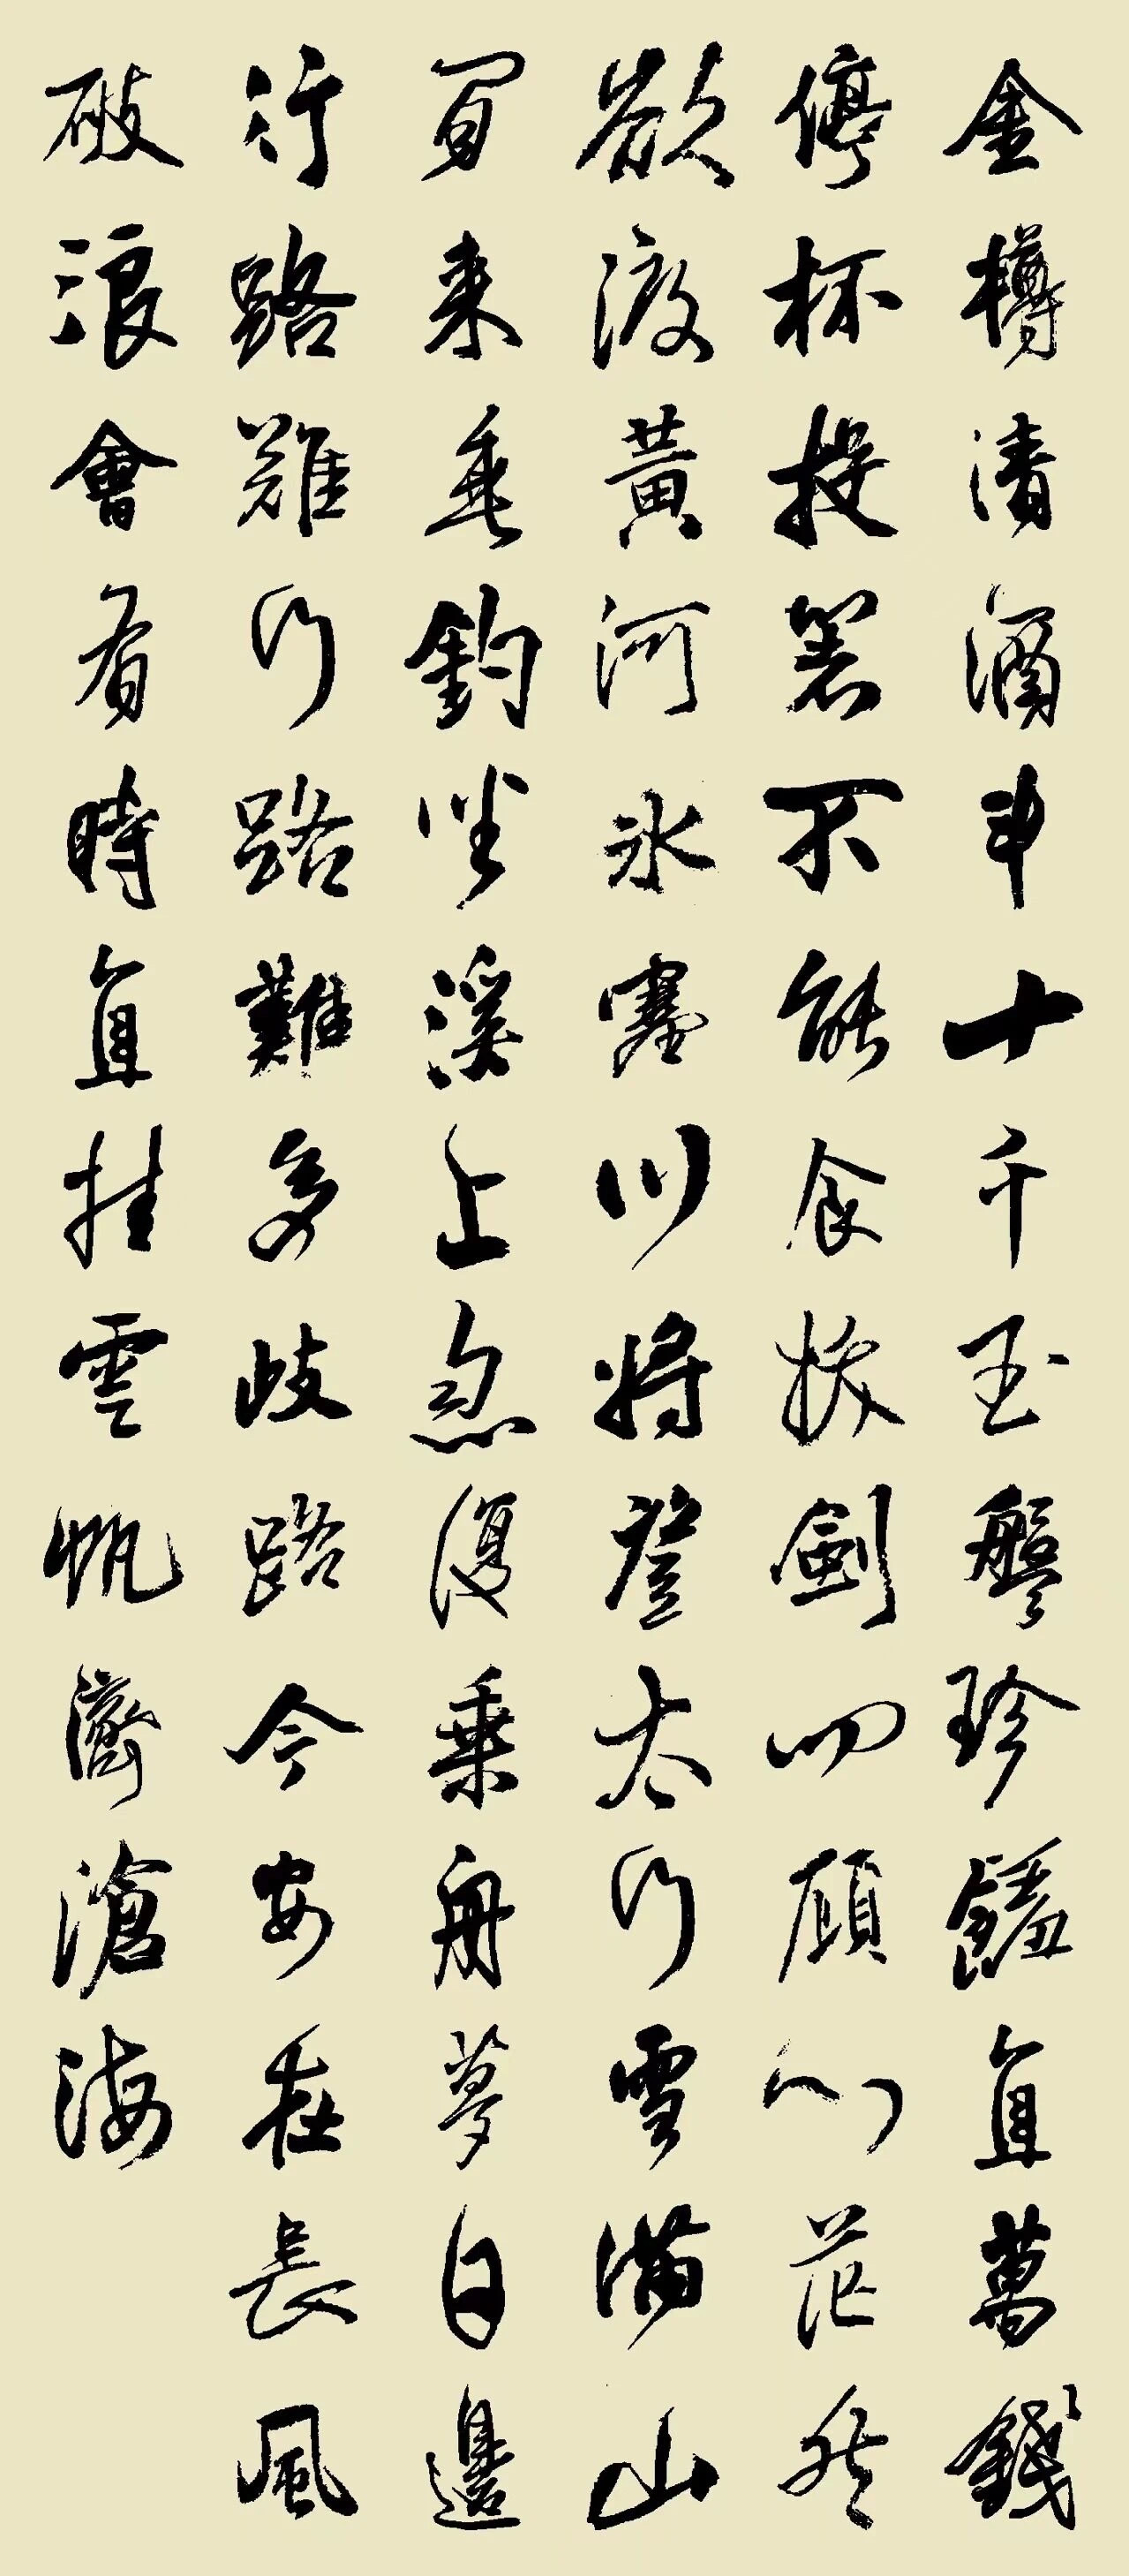 金樽清酒斗十千玉盤珍饈直萬錢
停杯投箸不能食拔劍四顧心茫然
欲渡黃河冰塞川將登太行雪滿山
閒来垂釣坐溪上忽復乘舟夢日邊
行路難行路難多歧路今安在長風
破浪會有時直挂雲帆濟滄海